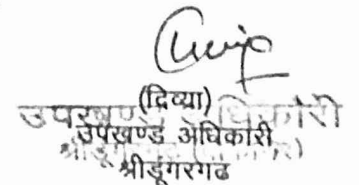 (दिव्या)
उपखण्ड अधिकारी
उपखण्ड अधिकारी
श्रीडूंगरगढ